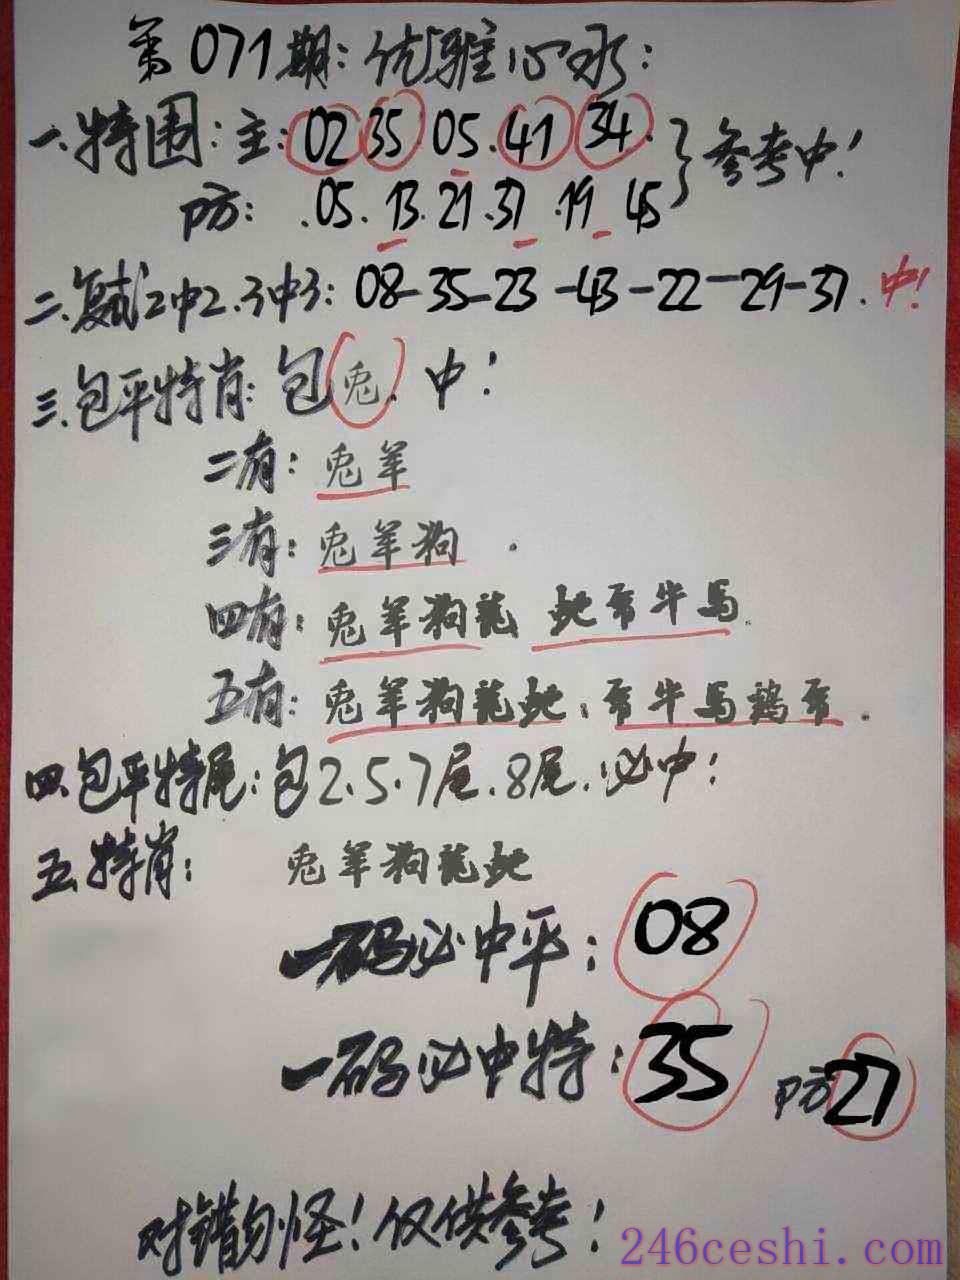 第071期：优雅心水：
一.特围：主：02 35.05.41 34.
防：.05.13.21.37.19.45 }参考中！
二.复试2中2.3中3：08-35-23-43-22-29-37.中！
三.包平特肖：包兔.中！
二有：兔羊
三有：兔羊狗.
四有：兔羊狗龍 蛇 牛馬.
五有：兔羊狗龍蛇. 牛馬鷄
四.包平特尾：包2.5.7尾.8尾.必中！
五.特肖：兔羊狗龍蛇
一码必中平：08
一码必中特：35 防27
对错勿怪！仅供参考！
246ceshi.com